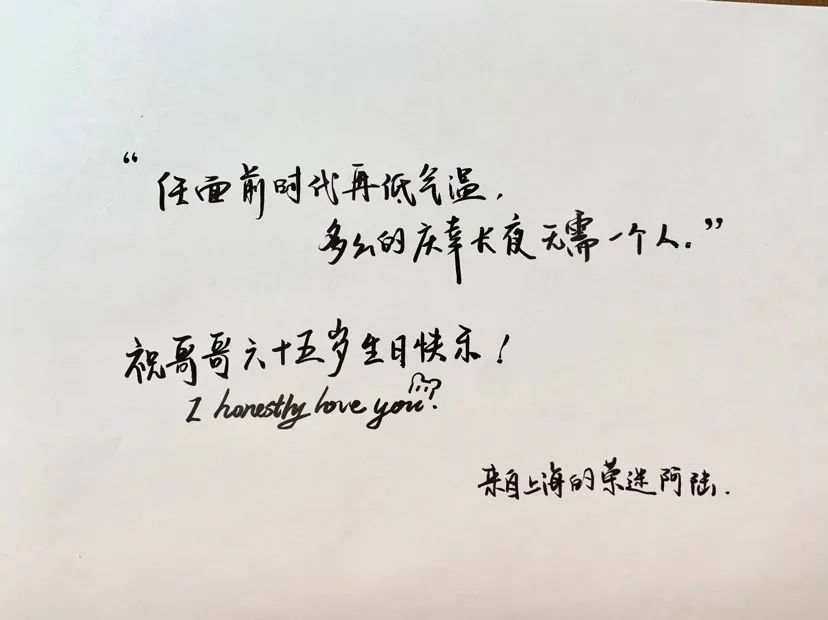 “任面前时代再低气温，
多么的庆幸长夜无需一个人。”
祝哥哥六十五岁生日快乐！
I honestly love you.
来自上海的荣迷阿陆.